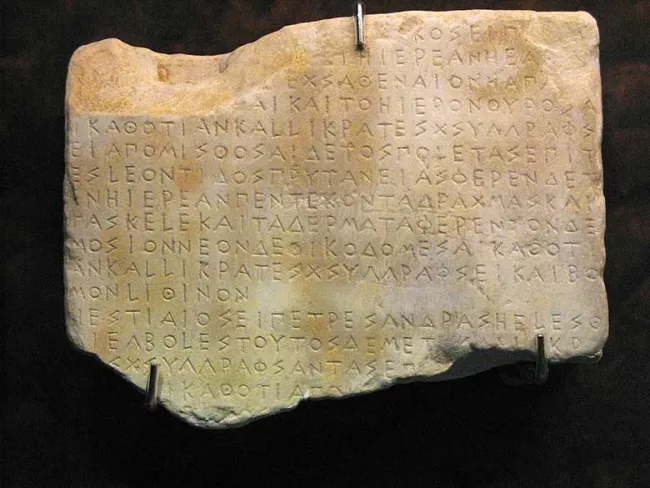 ΚΟΣΕΙΠ
ΕΙΗΙΕΡΕΑΝΗΕΑ
ΕΧΣΑΘΕΝΑΙΟΝΗΑΠΑ
ΑΙΚΑΙΤΟΗΙΕΡΟΝΘΥΡΟΣΑ
ΙΚΑΘΟΤΙΑΝΚΑΛΛΙΚΡΑΤΕΣΧΣΥΓΓΡΑΦΣ
ΕΙΑΠΟΜΙΣΘΟΣΑΙΔΕΤΟΣΠΟΛΕΤΑΣΕΠΙΤ
ΕΣΛΕΟΝΤΙΔΟΣΠΡΥΤΑΝΕΙΑΣΦΕΡΕΝΔΕΤ
ΕΝΗΙΕΡΕΑΝΠΕΝΤΕΚΟΝΤΑΔΡΑΧΜΑΣΚΑΙ
ΤΑΣΚΕΛΕΚΑΙΤΑΔΕΡΜΑΤΑΦΕΡΕΝΤΟΝΔΕ
ΜΟΣΙΟΝΝΕΟΝΔΕΟΙΚΟΔΟΜΕΣΑΙΚΑΘΟΤΙ
ΑΝΚΑΛΛΙΚΡΑΤΕΣΧΣΥΓΓΡΑΦΣΕΙΚΑΙΒΟ
ΜΟΝΛΙΘΙΝΟΝ
ΗΕΣΤΙΑΙΟΣΕΙΠΕΤΡΕΣΑΝΔΡΑΣΗΕΛΕΣΘ
ΑΙΕΓΒΟΛΕΣΤΟΥΤΟΣΔΕΜΕΤ
ΣΧΣΥΓΓΡΑΦΣΑΝΤΑΣΕΠ
ΙΚΑΘΟΤΙΑΠΟ